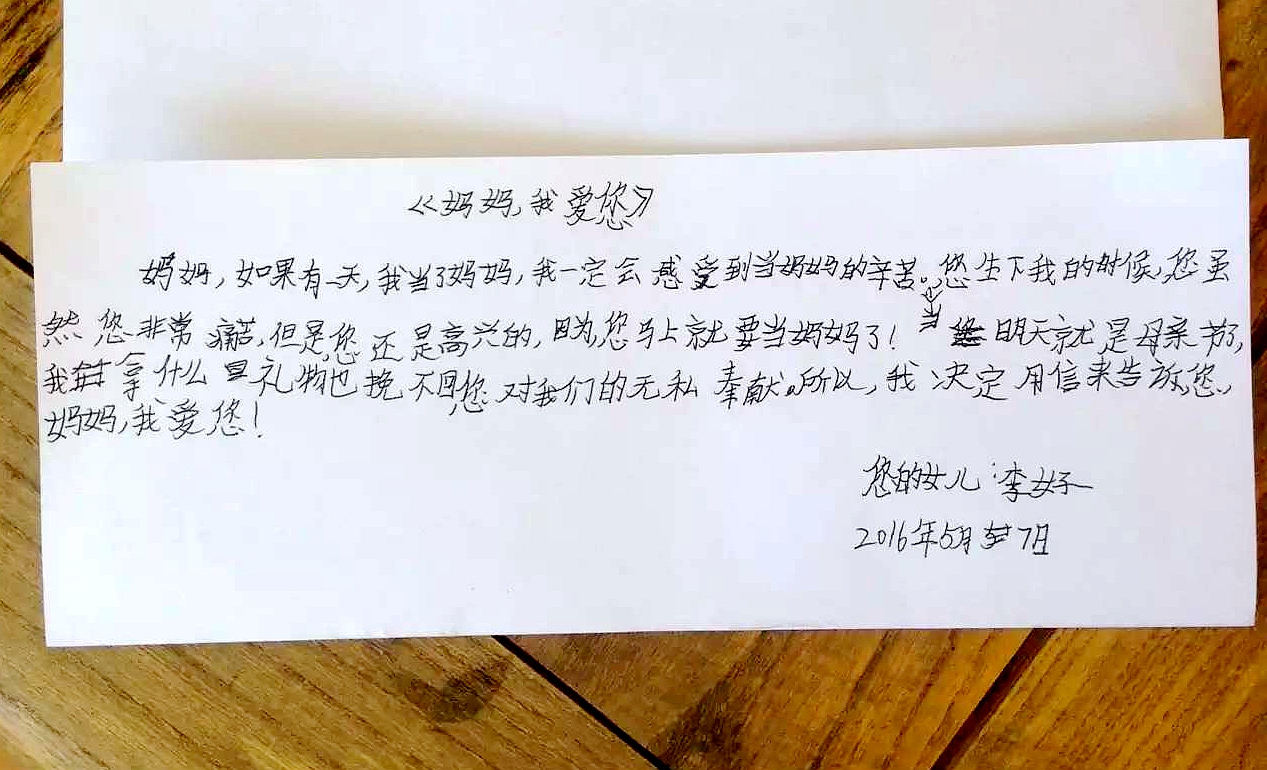 《妈妈,我爱您》
妈妈,如果有一天,我当了妈妈,我一定会感受到当妈妈的辛苦。当您生下我的时候,您虽
然您非常痛苦,但是,您还是高兴的,因为,您马上就要当妈妈了!明天就是母亲节了,
我拿什么礼物也挽不回,您对我们的无私奉献。所以,我决定用信来告诉您,
妈妈,我爱您!
您的女儿:李好
2016年5月7日